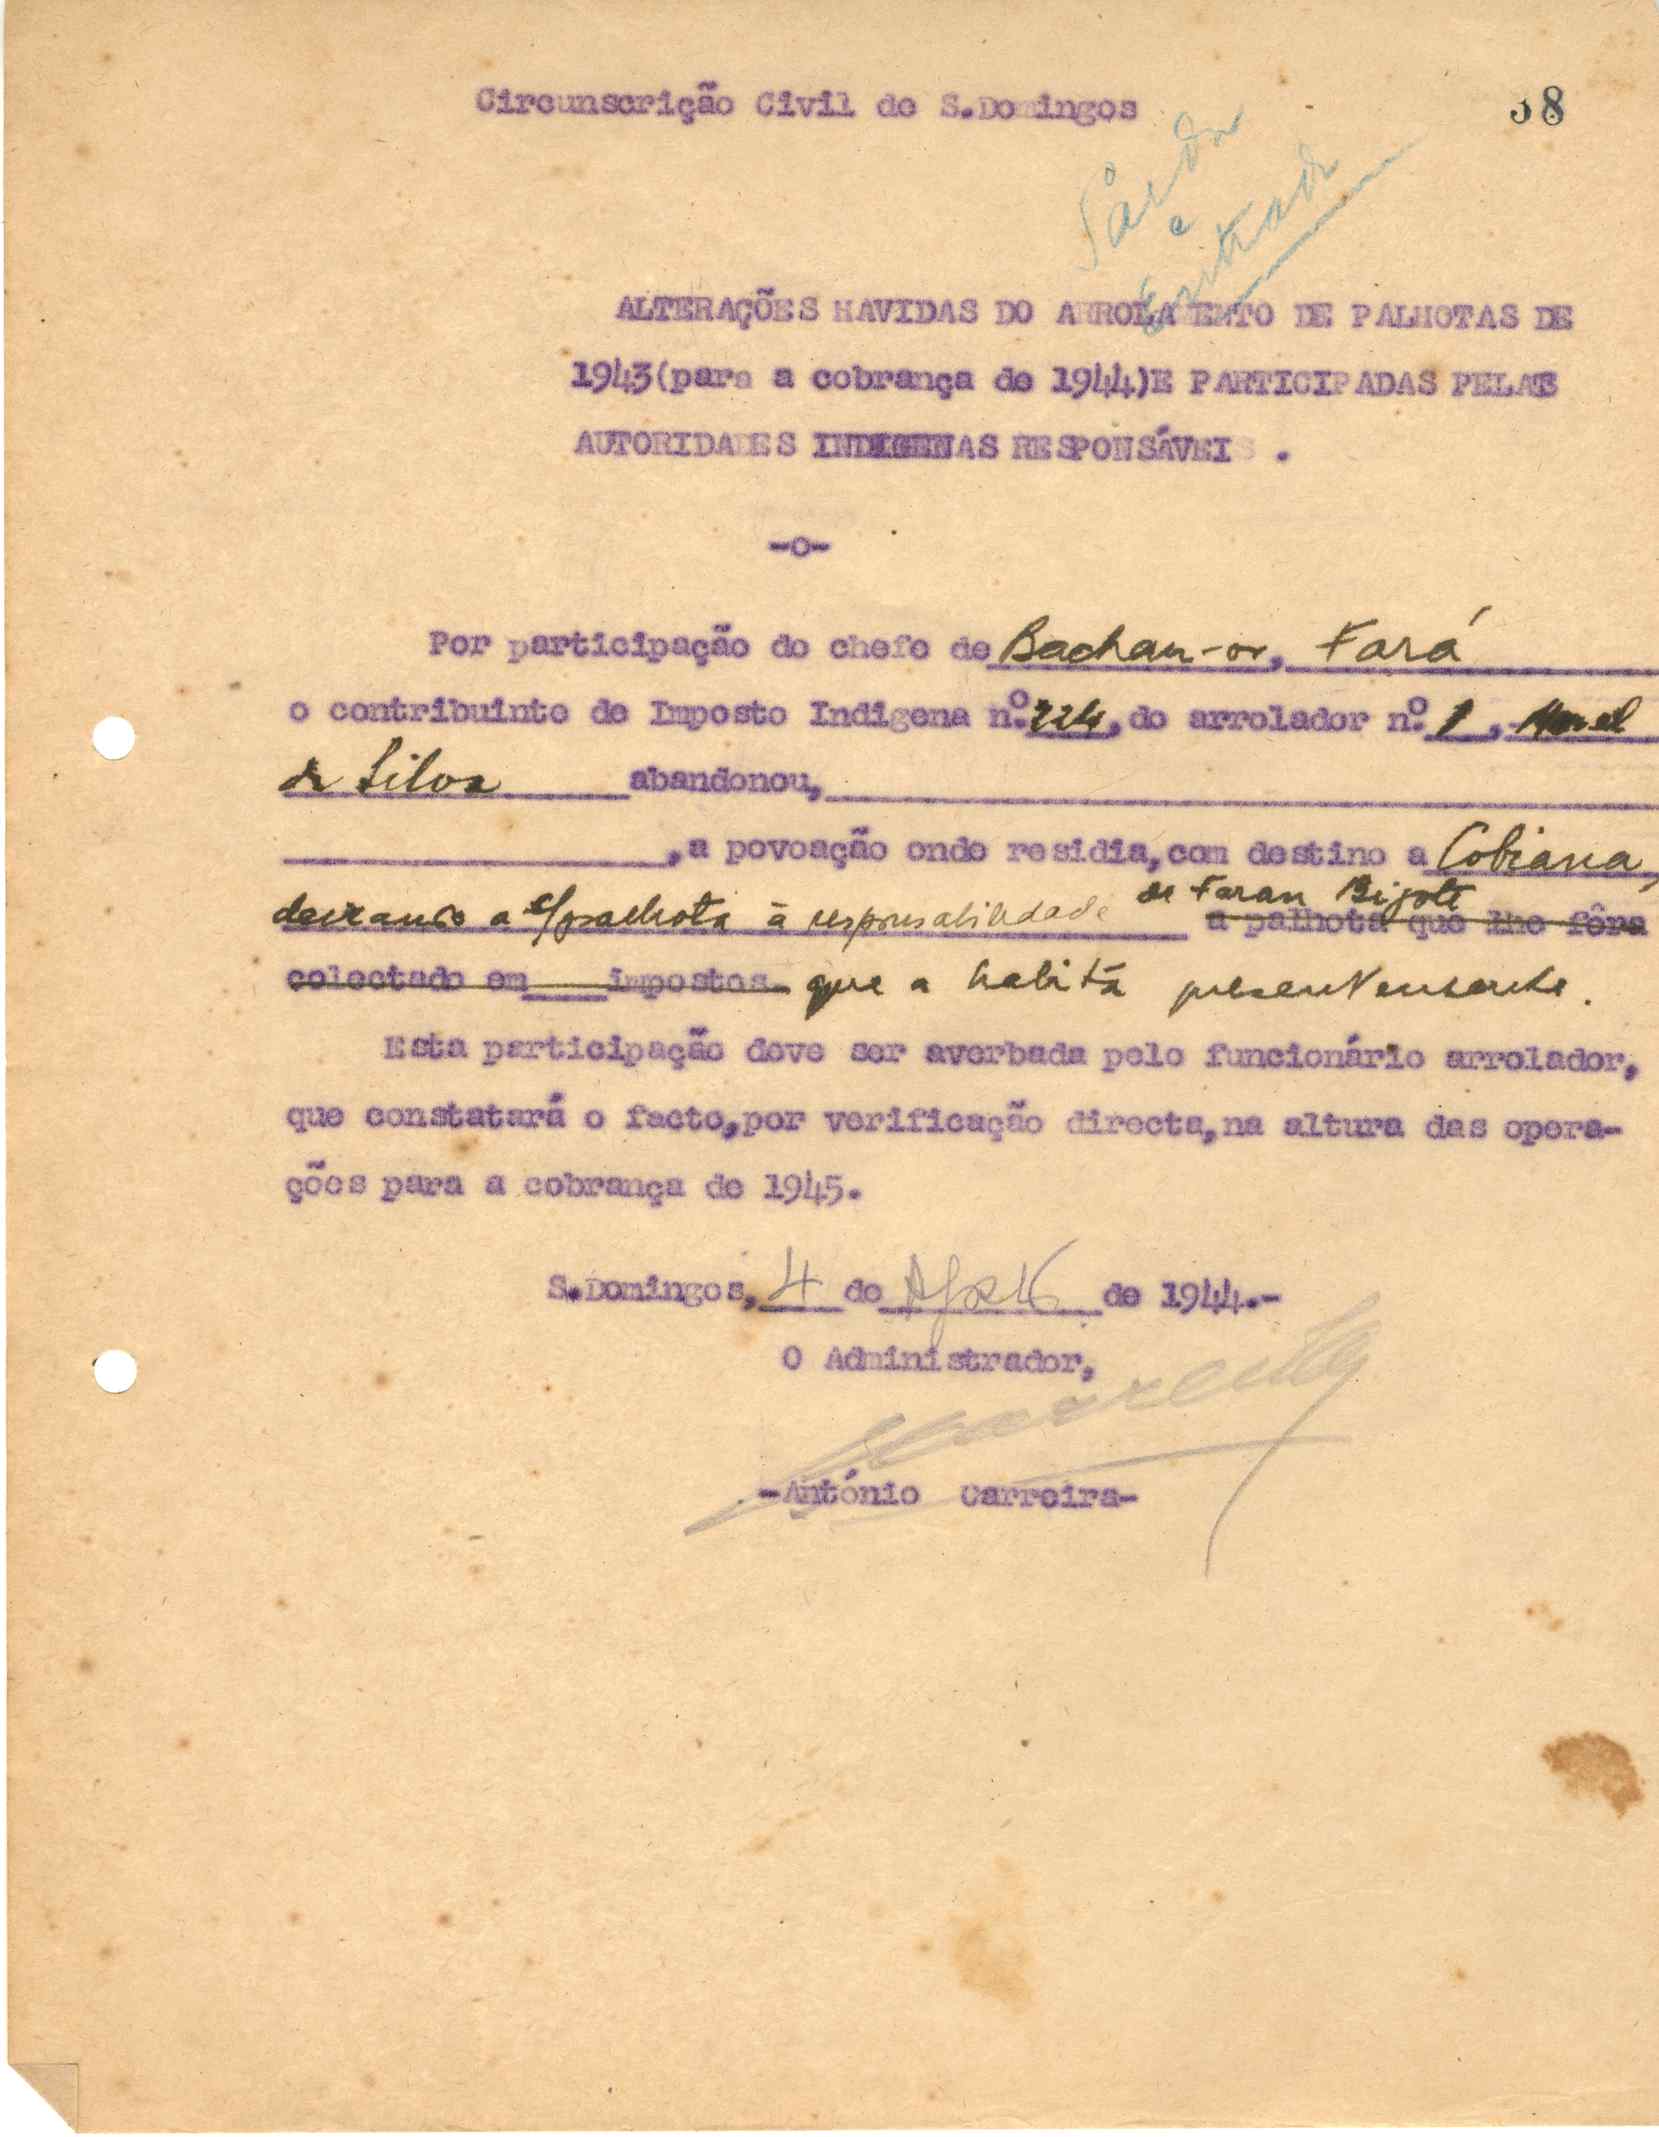 Circunscrição Civil de S.Domingos
38
Saída
e
Entrada
ALTERAÇÕES HAVIDAS DO ARROLAMENTO DE PALHOTAS DE
1943(para a cobrança de 1944)E PARTICIPADAS PELAS
AUTORIDADES INDIGENAS RESPONSÁVEIS .
-o-
Por participação do chefe de Bachan-or, Fará
o contribuinte de Imposto Indigena nº. 224, do arrolador nº. 1,
da Silva abandonou,
, a povoação onde residia, com destino a Cobiana,
deixando a s/palhota à responsabilidade de Faran Bijote a palhota que lhe fôra
colectado em impostos que a habita presentemente.
Esta participação deve ser averbada pelo funcionário arrolador,
que constatará o facto, por verificação directa, na altura das opera-
ções para a cobrança de 1945.
S.Domingos, 4 de Agosto de 1944.-
O Administrador,
-António Carreira-